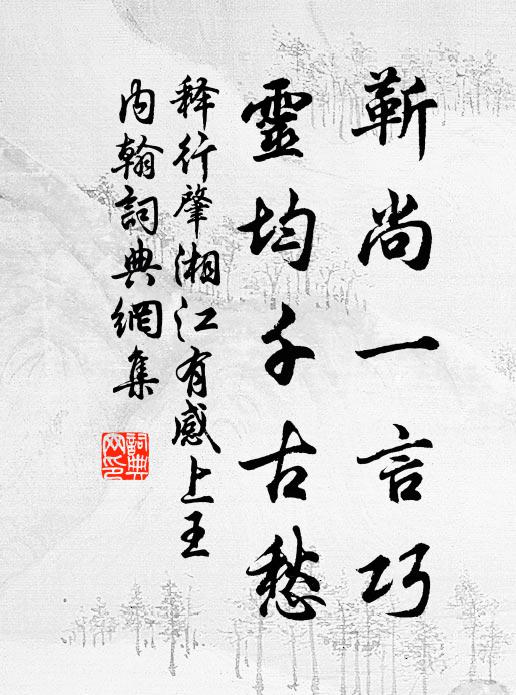 靳尚一言巧
靈均千古愁
释行肇湘江有感上王
内翰詞典網集
詞典網印